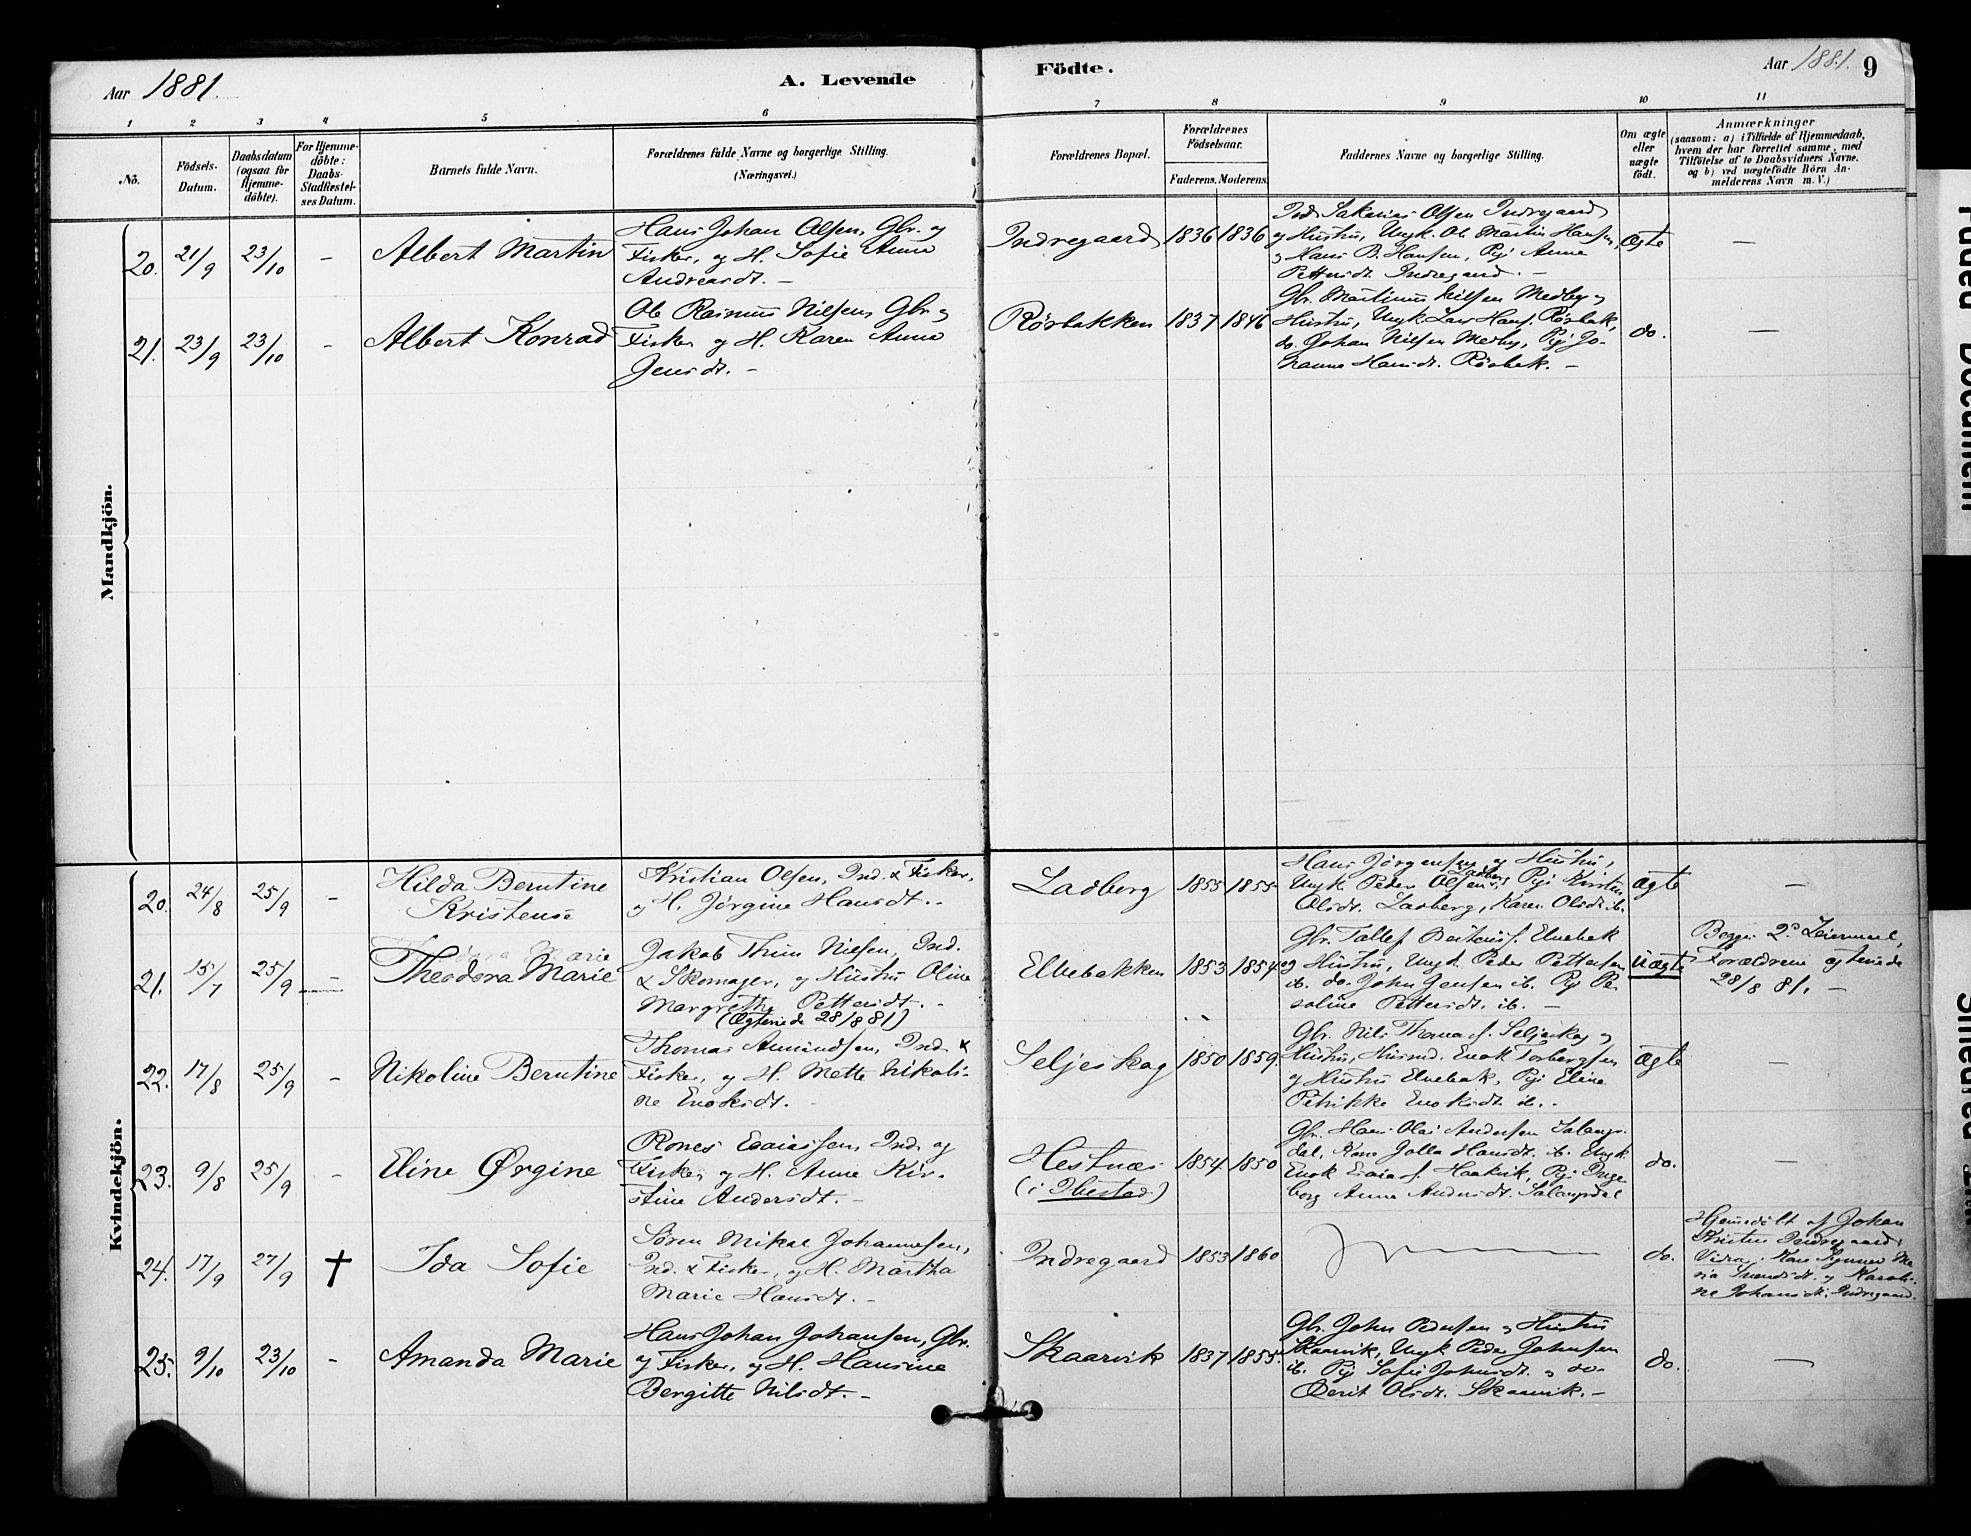 Aar 1881.
A. Levende
Födte.
Aar 1881.
9
1 2 3 4 5 6 7 8 9 10 11
No.
Födsels-
Datum.
Daabsdatum
(ogsaa for
Hjemme-
döbte).
For Hjemme-
döbte:
Daabs-
Stadfæstel-
ses Datum.
Barnets fulde Navn.
Forældrenes fulde Navne og borgerlige Stilling.
(Næringsvei.)
Forældrenes Bopæl.
Forældrenes
Födselsaar.
Faderens. Moderens.
Faddernes Navne og borgerlige Stilling.
Om ægte
eller
uægte
födt.
Anmærkninger
(saasom: a) i Tilfælde af Hjemmedaab,
hvem der har forrettet samme, med
Tilföielse af to Daabsvidners Navne.
og b) ved uægtefödte Börn An-
melderens Navn m. V.)
Mandkjön.
20. 21/9 23/10 - Albert Martin
Hans Johan Olsen, Gbr. og
Fisker, og H. Sofie Anna
Andreasdt. -
Indregaard 1836 1836
Ind. Sakarias Olsen Indregaard
og Hustru, Ungk. Ole Martin Hansen,
og Hans B. Hansen, Pige Anne
Pettersdt. Indregaard. -
Ægte -
21. 23/9 23/10 - Albert Konrad
Ole Rasmus Nilsen, Gbr. og
Fisker, og H. Karen Anna
Jensdt. -
Rörbakken 1837 1846
Gbr. Martinus Nilsen Medby og
Hustru, Ungk. Lars Hans. Rörbak,
do. Johan Nilsen Medby, Pige Jo-
hanna Hansdt. Rörbak. -
do. -
Kvindekjön.
20. 24/8 25/9 - Hilda Berntine
Kristense
Kristian Olsen, Ind. & Fisker,
og H. Jörgine Hansdt. -
Ladberg 1855 1855
Hans Jörgensen og Hustru,
Ungk. Peder Olsen Ladberg, Pige Kirsten
Olsdt. Ladberg, Karen Olsdt. ib.
Ægte -
21. 15/7 25/9 - Theodora Marie
Jakob Thum Nielsen, Ind.
& Skomager, og Hustru Oline
Margrethe Pettersdt. -
(Ægteviede 28/8 81)
Elvebakken 1853 1854
Gbr. Tallef Elvebak
og Hustru, Ungk. Peder Pettersen
ib. do. John Jensen ib. Pige Pe-
Pettersdt. ib. -
Uægte
Begges 2det Leiermaal,
Forældrene ægteviede
28/8 81. -
22. 17/8 25/9 - Nikoline Berntine
Thomas Amundsen, Ind. &
Fisker, og H. Mette Nikoli-
ne Enoksdt. -
Seljeskog 1850 1859.
Gbr. Nils Thomas. Seljeskog og
Hustru, Husmd. Enok Torbergsen
og Hustru Elvebak, Pige Eline
Petrikke Enoksdt. ib. -
Ægte -
23. 9/8 25/9 - Eline Ørgine
Rones Esaiassen, Ind. og
Fisker, og H. Anne Kir-
stine Andersdt. -
Hestnæs
(i Ibestad)
1854 1850
Gbr. Hans Olai Andersen Salangs-
dal, Kone Hansdt. ib. Ungk.
Enok Esaias. Haakvik, Pige Inge-
borg Anna Andersdt. Salangsdal
do. -
24. 17/9 27/9 † Ida Sofie
Sören Mikal Johannesen,
Ind. & Fisker, og H. Martha
Marie Hansdt. -
Indregaard 1853 1860
do.
Hjemdöbt af Johan
Kristen Indregaard,
Karoli-
ne Johansdt. Indregaard.
25. 9/10 23/10 - Amanda Marie
Hans Johan Johansen, Gbr.
og Fisker, og H. Hansine
Bergitte Nilsdt. -
Skaarvik 1837 1855.
Gbr. John Pedersen og Hustru
Skaarvik, Ungk. Peder Johnsen
ib. Pige Sofie Johnsdt. og do.
Berit Olsdt. Skaarvik. -
do. -